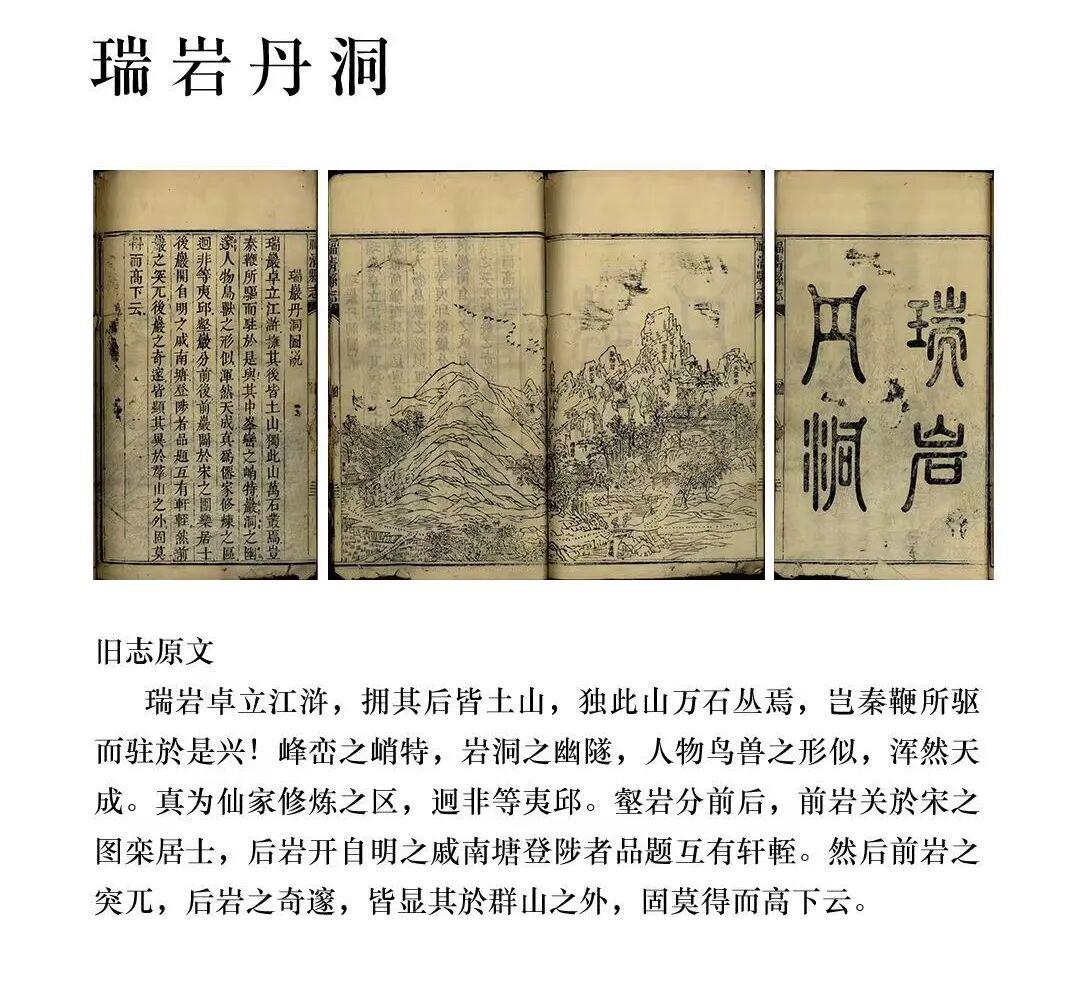 瑞岩丹洞
瑞岩
丹洞
福清縣志
瑞巖丹洞圖說
瑞巖卓立江滸擁其後皆土山獨此山萬石叢焉豈
秦鞭所驅而駐於是與其中峯巒之峭特巖洞之幽
邃人物鳥獸之形似渾然天成真爲僊家修煉之區
迥非等夷邱壑巖分前後前巖闢於宋之團欒居士
後巖開自明之戚南塘登陟者品題互有軒輊然前
巖之突兀後巖之奇邃皆顯其異於羣山之外固莫
得而高下云
旧志原文
瑞岩卓立江浒，拥其后皆土山，独此山万石丛焉，岂秦鞭所驱
而驻於是兴！峰峦之峭特，岩洞之幽隧，人物鸟兽之形似，浑然天
成。真为仙家修炼之区，迥非等夷邱。壑岩分前后，前岩关於宋之
图栾居士，后岩开自明之戚南塘登陟者品题互有轩輊。然后前岩之
突兀，后岩之奇邃，皆显其於群山之外，固莫得而高下云。